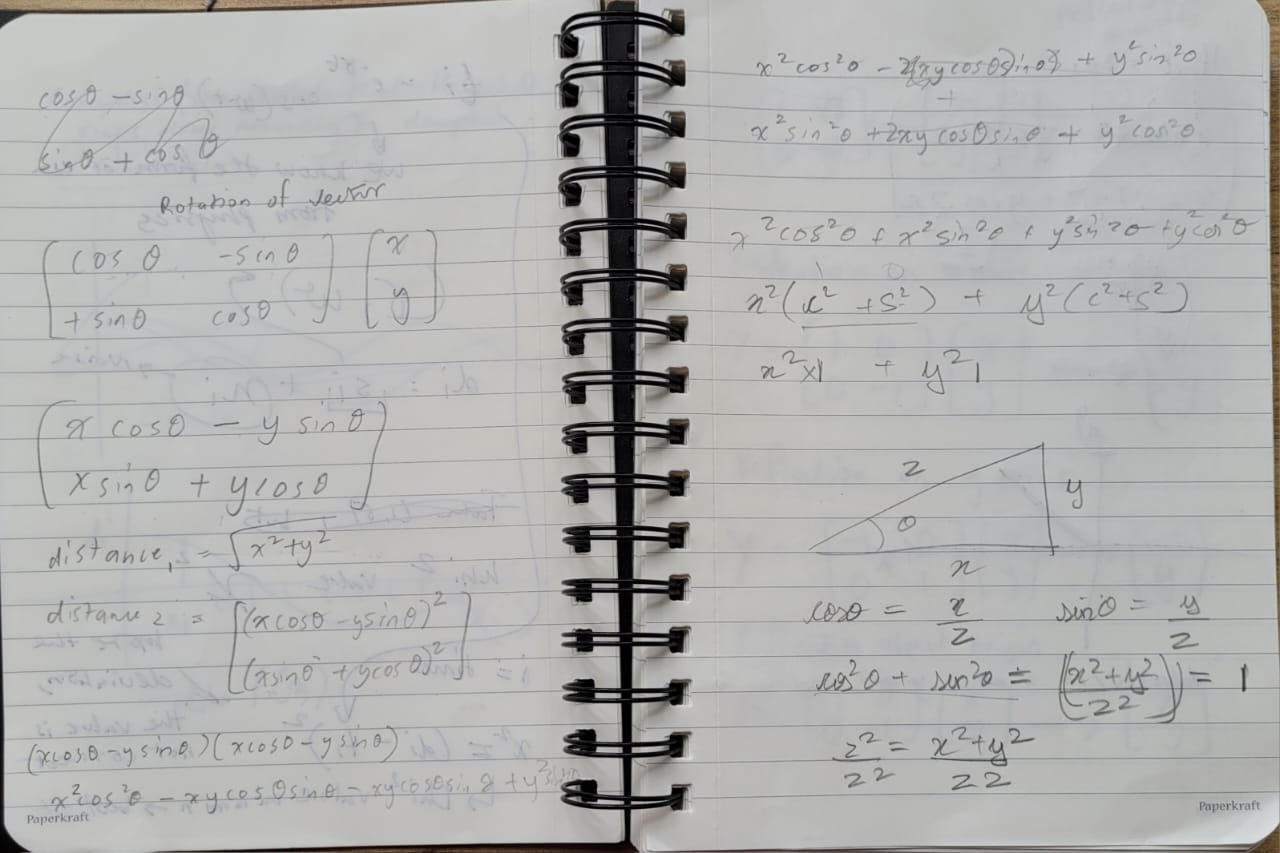 cosθ - sinθ
sinθ + cos θ
Rotation of vector
cos θ -sinθ x
+ sinθ cosθ y
x cosθ - y sinθ
x sinθ + y cosθ
distance, = √x²+y²
distance 2 = (x cosθ - y sinθ)²
(x sinθ + y cosθ)²
(x cosθ - y sinθ)(x cosθ - y sinθ)
x² cos²θ - xy cosθ sinθ - xy cosθ sinθ + y² sin²θ
Paperkraft
x² cos²θ - 2(xy cosθ sinθ) + y² sin²θ
+
x² sin²θ + 2xy cosθ sinθ + y² cos²θ
x² cos²θ + x² sin²θ + y² sin²θ + y² cos²θ
x² (c² + s²) + y² (c² + s²)
x² x 1 + y² 1
z
θ
y
x
cosθ = x/z sinθ = y/z
cos²θ + sin²θ = (x² + y²/z²) = 1
z²/z² = x² + y²/z2
Paperkraft